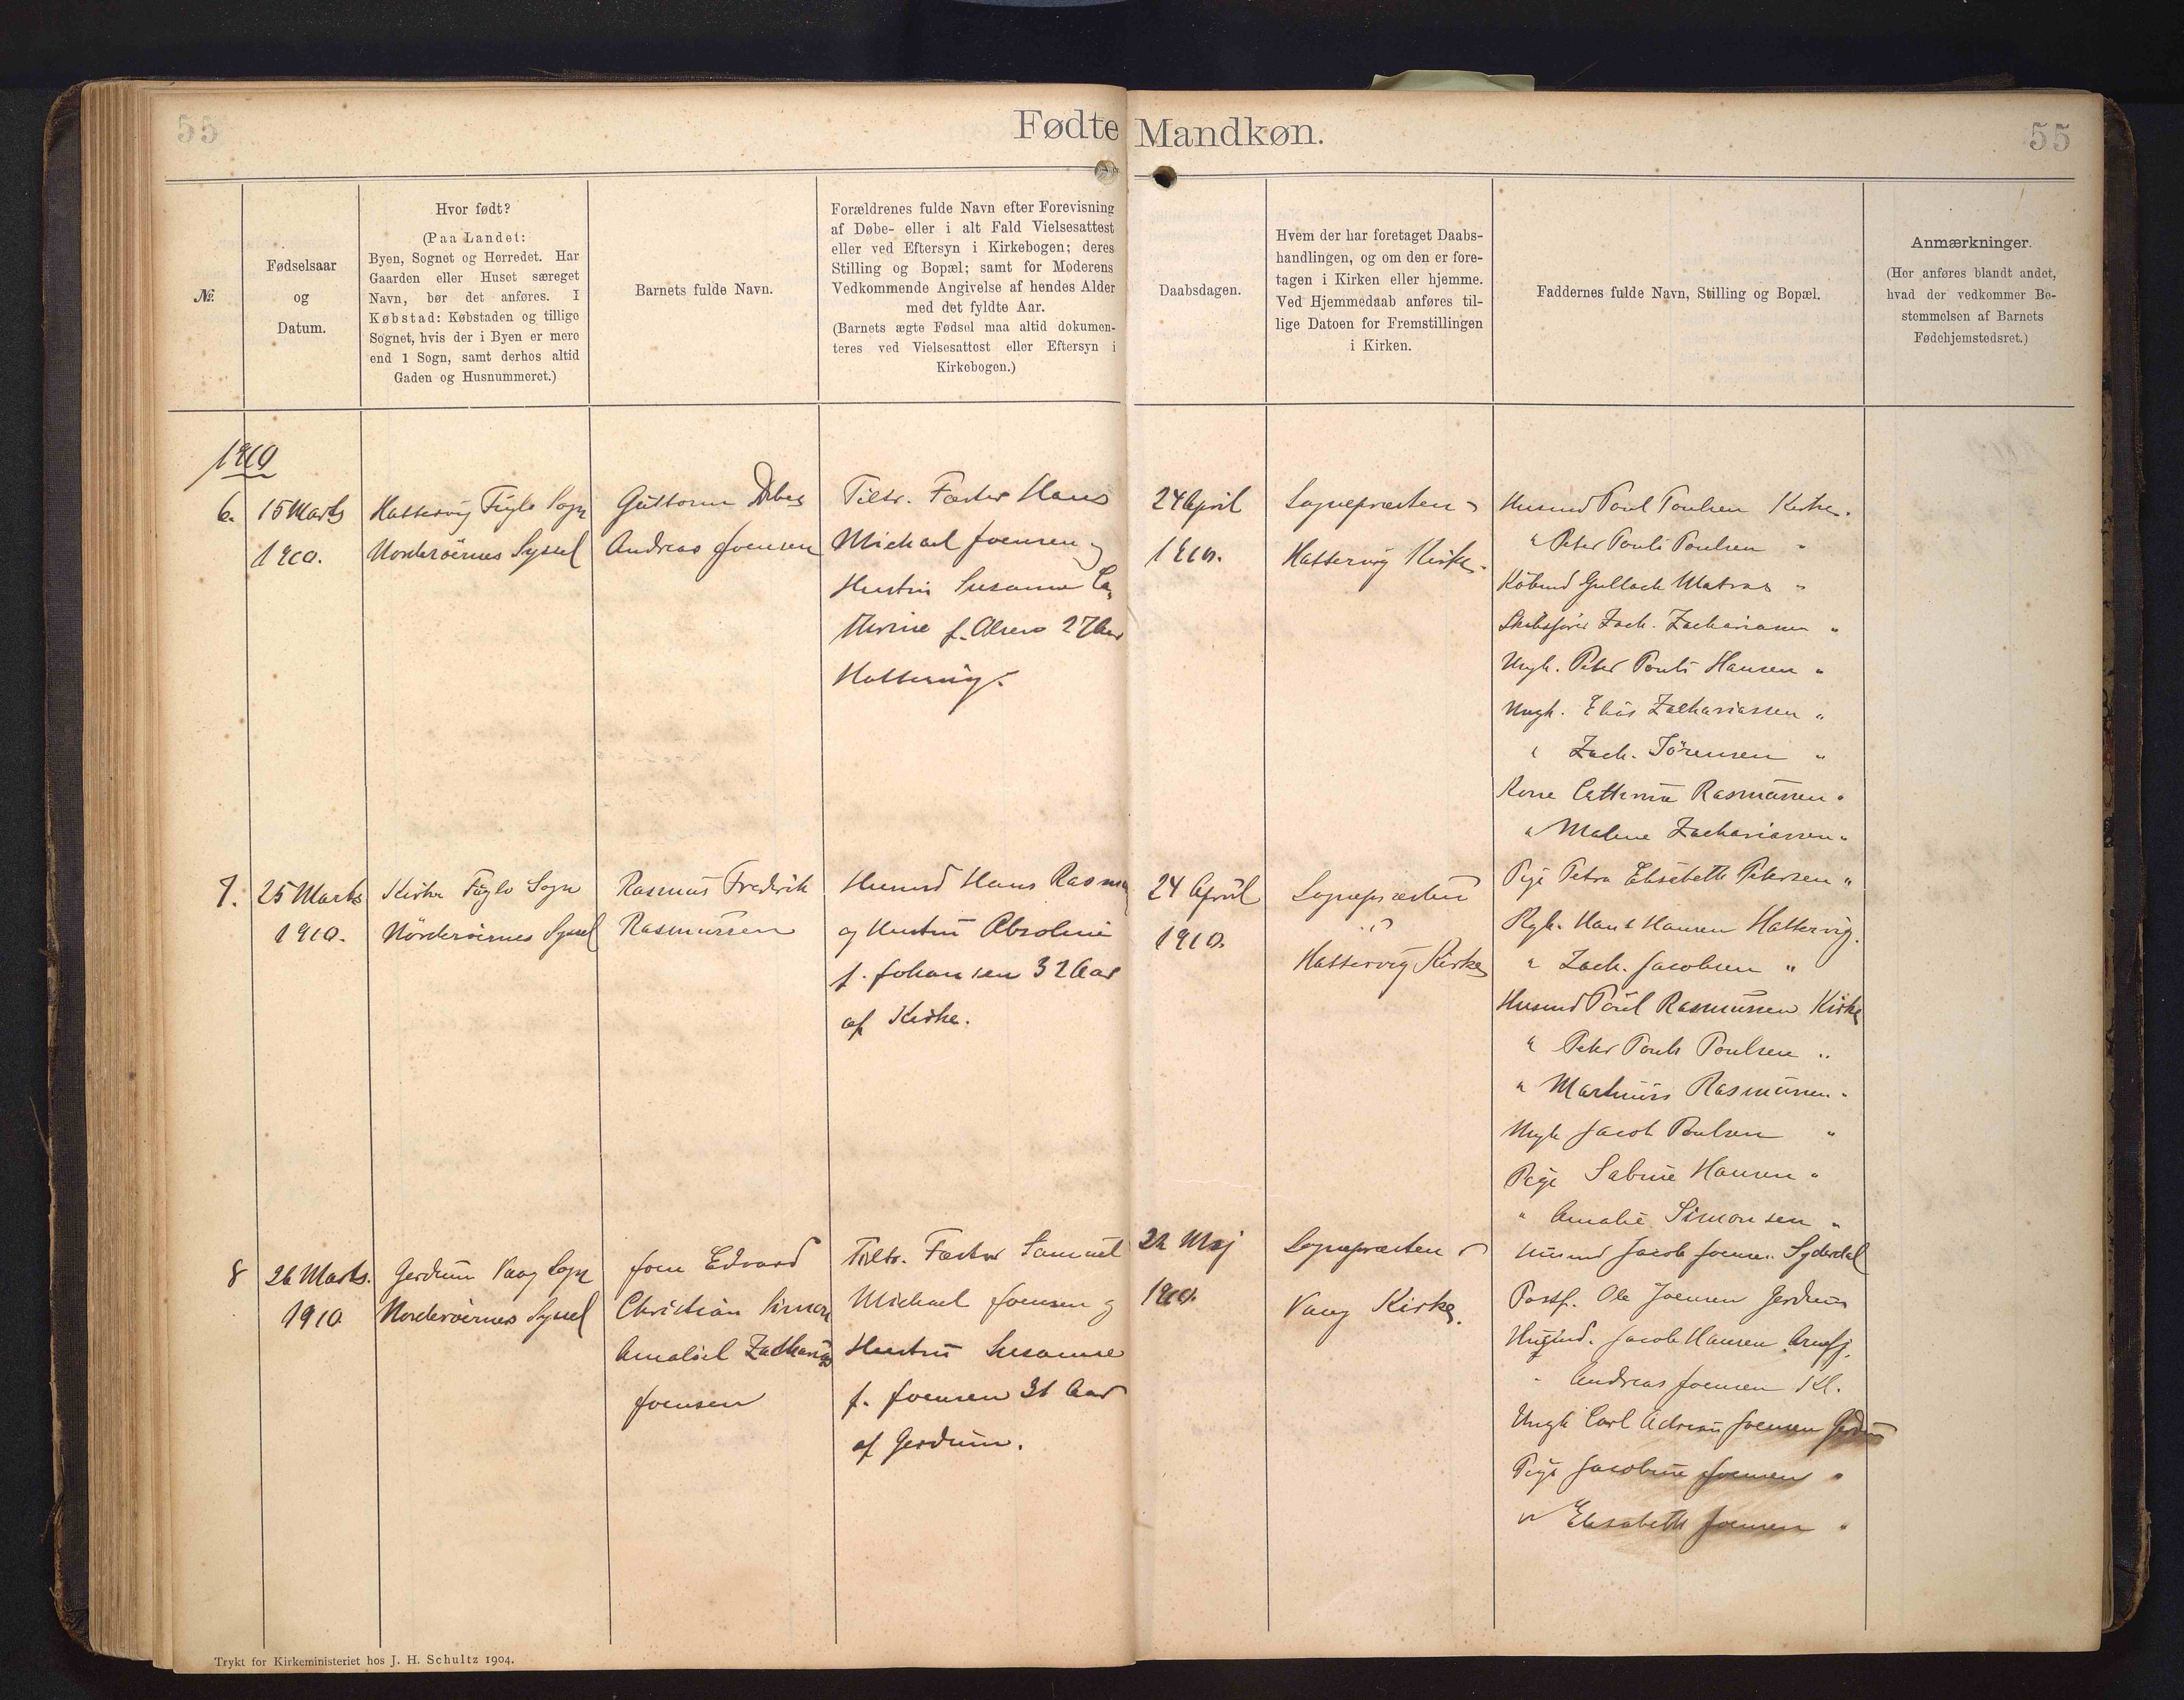 55
Fødte Mandkøn.
55
№.
Fødselsaar
og
Datum.
Hvor født?
(Paa Landet:
Byen, Sognet og Herredet. Har
Gaarden eller Huset særeget
Navn, bør det anføres. I
Købstad: Købstaden og tillige
Sognet, hvis der i Byen er mere
end 1 Sogn, samt derhos altid
Gaden og Husnummeret.)
Barnets fulde Navn.
Forældrenes fulde Navn efter Forevisning
af Døbe- eller i alt Fald Vielsesattest
eller ved Eftersyn i Kirkebogen; deres
Stilling og Bopæl; samt for Moderens
Vedkommende Angivelse af hendes Alder
med det fyldte Aar.
(Barnets ægte Fødsel maa altid dokumen-
teres ved Vielsesattest eller Eftersyn i
Kirkebogen.)
Daabsdagen.
Hvem der har foretaget Daabs-
handlingen, og om den er fore-
tagen i Kirken eller hjemme.
Ved Hjemmedaab anføres til-
lige Datoen for Fremstillingen
i Kirken.
Faddernes fulde Navn, Stilling og Bopæl.
Anmærkninger.
(Her anføres blandt andet,
hvad der vedkommer Be-
stemmelsen af Barnets
Fødehjemstedsret.)
1910
6.
15 Marts
1910.
Hattervig Fuglø Sogn
Norderøernes Syssel
Guttorm Debes
Andreas Joensen
Tiltr. Fæster Hans
Michael Joensen og
Hustru Susanne Ca-
thrine f. Olsen 27 Aar
Hattervig.
24 April
1910.
Sognepræsten i
Hattervig Kirke.
Husmd Poul Poulsen Kirke.
" Peter Pauli Poulsen "
Købmd Gullach Matras "
Skibsfører Zach. Zachariasen "
Ungk. Peter Pauli Hansen "
Ungk. Elias Zachariassen "
" Zach. Sørensen "
Kone Cathrine Rasmussen "
" Malene Zachariassen "
Pige Petra Elisabeth Petersen "
7.
25 Marts
1910.
Kirke Fuglø Sogn
Norderøernes Syssel
Rasmus Frederik
Rasmussen
Husmd Hans Rasm
og Hustru Absoline
f. Johansen 32 Aar
af Kirke.
24 April
1910.
Sognepræsten
i
Hattervig Kirke
Hans Hansen Hattervig.
" Zach. Jacobsen "
Husmd Poul Rasmussen Kirke
" Peter Pauli Poulsen "
" Martinus Rasmussen "
Ungk Jacob Poulsen "
Pige Sabine Hansen "
" Amalie Simonsen "
8
26 Marts.
1910
Gerdum Vaag Sogn
Norderøernes Syssel
Joen Edvard
Christian Simon
Amaliel Zacharias
Joensen
Tiltr. Fæster Samuel
Michael Joensen og
Hustru Susanne
f. Joensen 31 Aar
af Gerdum.
22 Maj
1910.
Sognepræsten i
Vaag Kirke.
Husmd Jacob Joensen Syderdal
Ole Joensen Gerdum
Jacob Hansen Arnefj.
" Andreas Joensen Kl.
Ungk Carl Adrian Joensen Gerdum
Pige Jacobine Joensen "
" Elisabeth Joensen "
Trykt for Kirkeministeriet hos J. H. Schultz 1904.